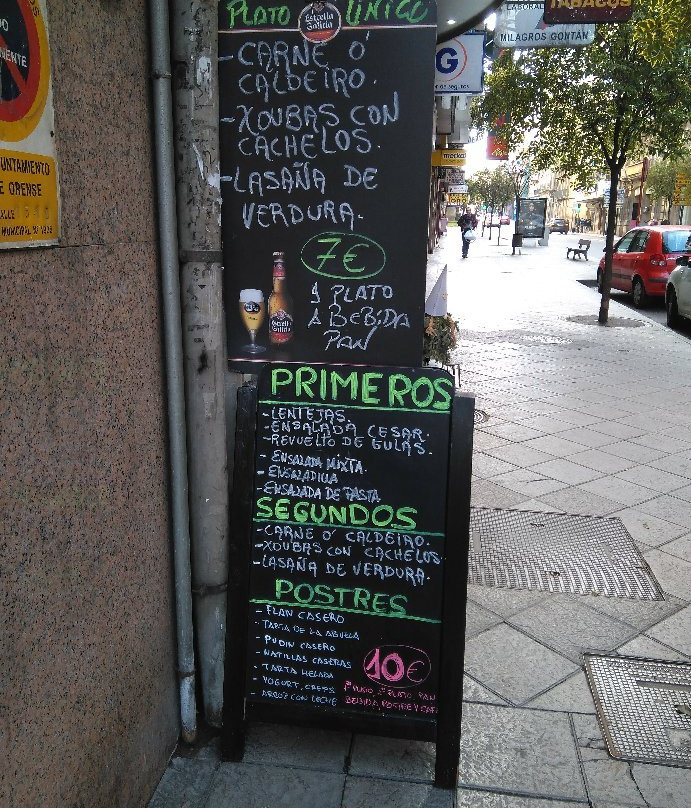 PLATO ÚNICO
Estrella
Galicia
- CARNE O'
CALDEIRO.
- XOUBAS CON
CACHELOS.
- LASAÑA DE
VERDURA.
7€
1 PLATO
1 BEBIDA
PAN
Estrella
Galicia
PRIMEROS
- LENTEJAS.
- ENSALADA CESAR.
- REVUELTO DE GULAS.
- ENSALADA MIXTA.
- ENSALADILLA
- ENSALADA DE PASTA
SEGUNDOS
- CARNE O' CALDEIRO.
- XOUBAS CON CACHELOS
- LASAÑA DE VERDURA.
POSTRES
- FLAN CASERO
- TARTA DE LA ABUELA
- PUDIN CASERO
- NATILLAS CASERAS
- TARTA HELADA
- YOGURT, CREPS
ARROZ CON LECHE
10€
1º PLATO, 2º PLATO, PAN
BEBIDA, POSTRE Y CAFÉ
LABORAL
MILAGROS GONTÁN
TABACOS
G
de seguros
UNTAMIENTO
E ORENSE